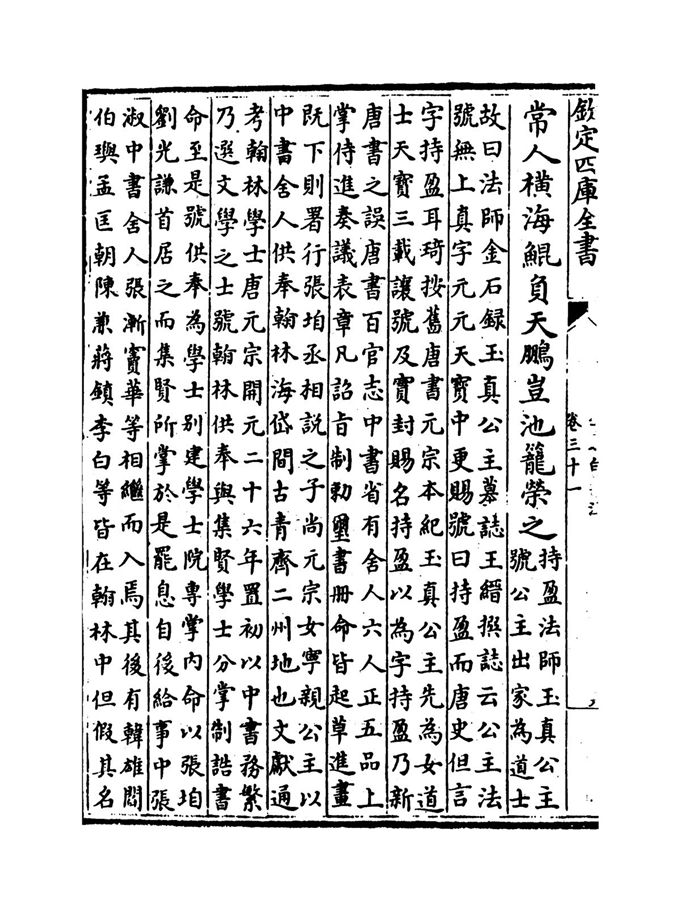 欽定四庫全書
卷三十一
常人橫海鯤負天鵬豈池籠榮之
持盈法師玉真公主
號公主出家為道士
故曰法師金石録玉真公主墓誌王縉撰誌云公主法
號無上真字元元天寳中更賜號曰持盈而唐史但言
字持盈耳琦按舊唐書元宗本紀玉真公主先為女道
士天寳三載讓號及寳封賜名持盈以為字持盈乃新
唐書之誤唐書百官志中書省有舍人六人正五品上
掌侍進奏議表章凡詔旨制勅璽書册命皆起草進畫
既下則署行張垍丞相說之子尚元宗女寧親公主以
中書舍人供奉翰林海岱間古青齊二州地也文獻通
考翰林學士唐元宗開元二十六年置初以中書務繁
乃選文學之士號翰林供奉與集賢學士分掌制誥書
命至是號供奉為學士别建學士院專掌内命以張垍
劉光謙首居之而集賢所掌於是罷息自後給事中張
淑中書舍人張漸竇華等相繼而入焉其後有韓雄閻
伯璵孟匡朝陳兼蔣鎮李白等皆在翰林中但假其名